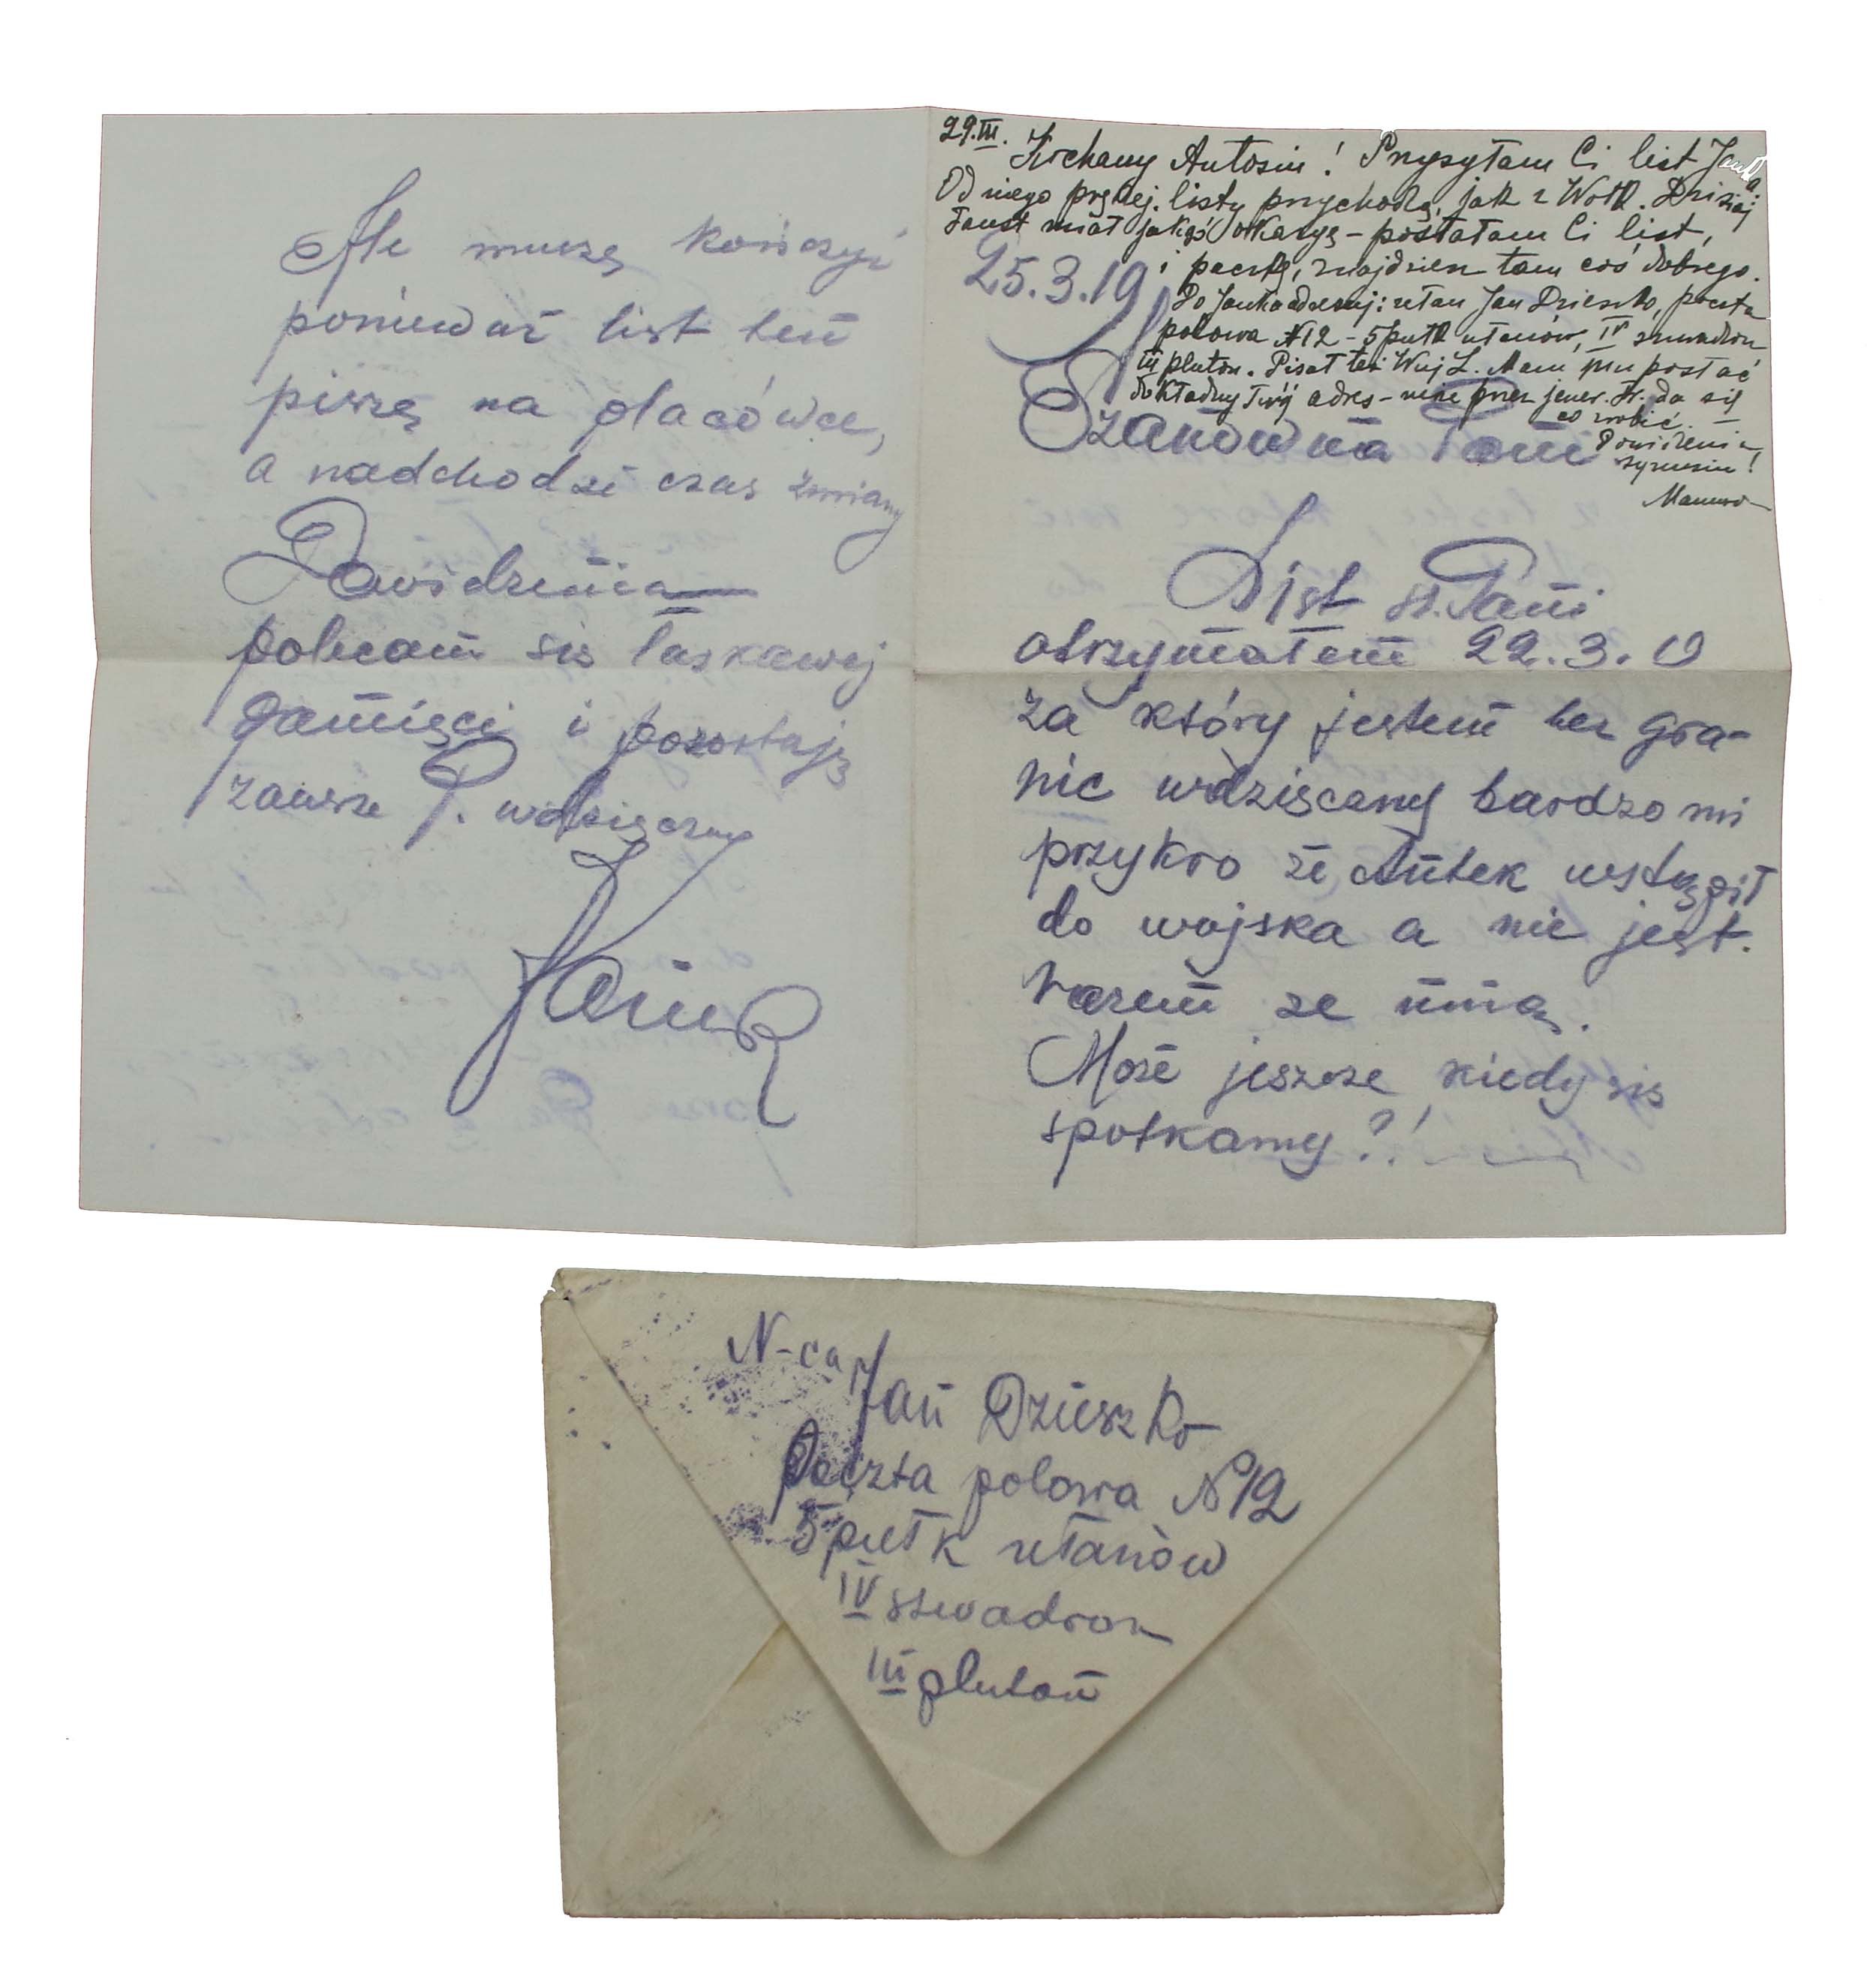 29.III.
Kochany Antosiu! Przysyłam Ci list Janka
Od niego prędzej listy przychodzą, jak z Wołk. Dzisiaj
Faust miał jakąś okazyę – posłałam Ci list,
i paczkę, znajdziesz tam coś dobrego.
Do Janka adresuj: ułan Jan Dzieszko, poczta
polowa №12 – 5 pułk ułanów, IV szwadron
III pluton. Pisał też Wuj L. Mam mu posłać
dokładny Twój adres – może przez jener. Fr. da się
co zrobić.
Powidzenia
synusiu!
Mamusia
25.3.19
Szanowna Pani
List sz. Pani
otrzymałem 22.3.19
za który jestem bez gra-
nic wdzięczny bardzo mi
przykro że Antek wstąpił
do wojska a nie jest
razem ze mną.
Może jeszcze kiedy się
spotkamy?!
Ale muszę kończyć
ponieważ list ten
piszę na placówce,
a nadchodzi czas zmiany
Dowidzenia
polecam się łaskawej
pamięci i pozostaję
zawsze P. wdzięczny
Janek
N-ca Jan Dzieszko
Poczta polowa №12
5 pułk ułanów
IV szwadron
III pluton